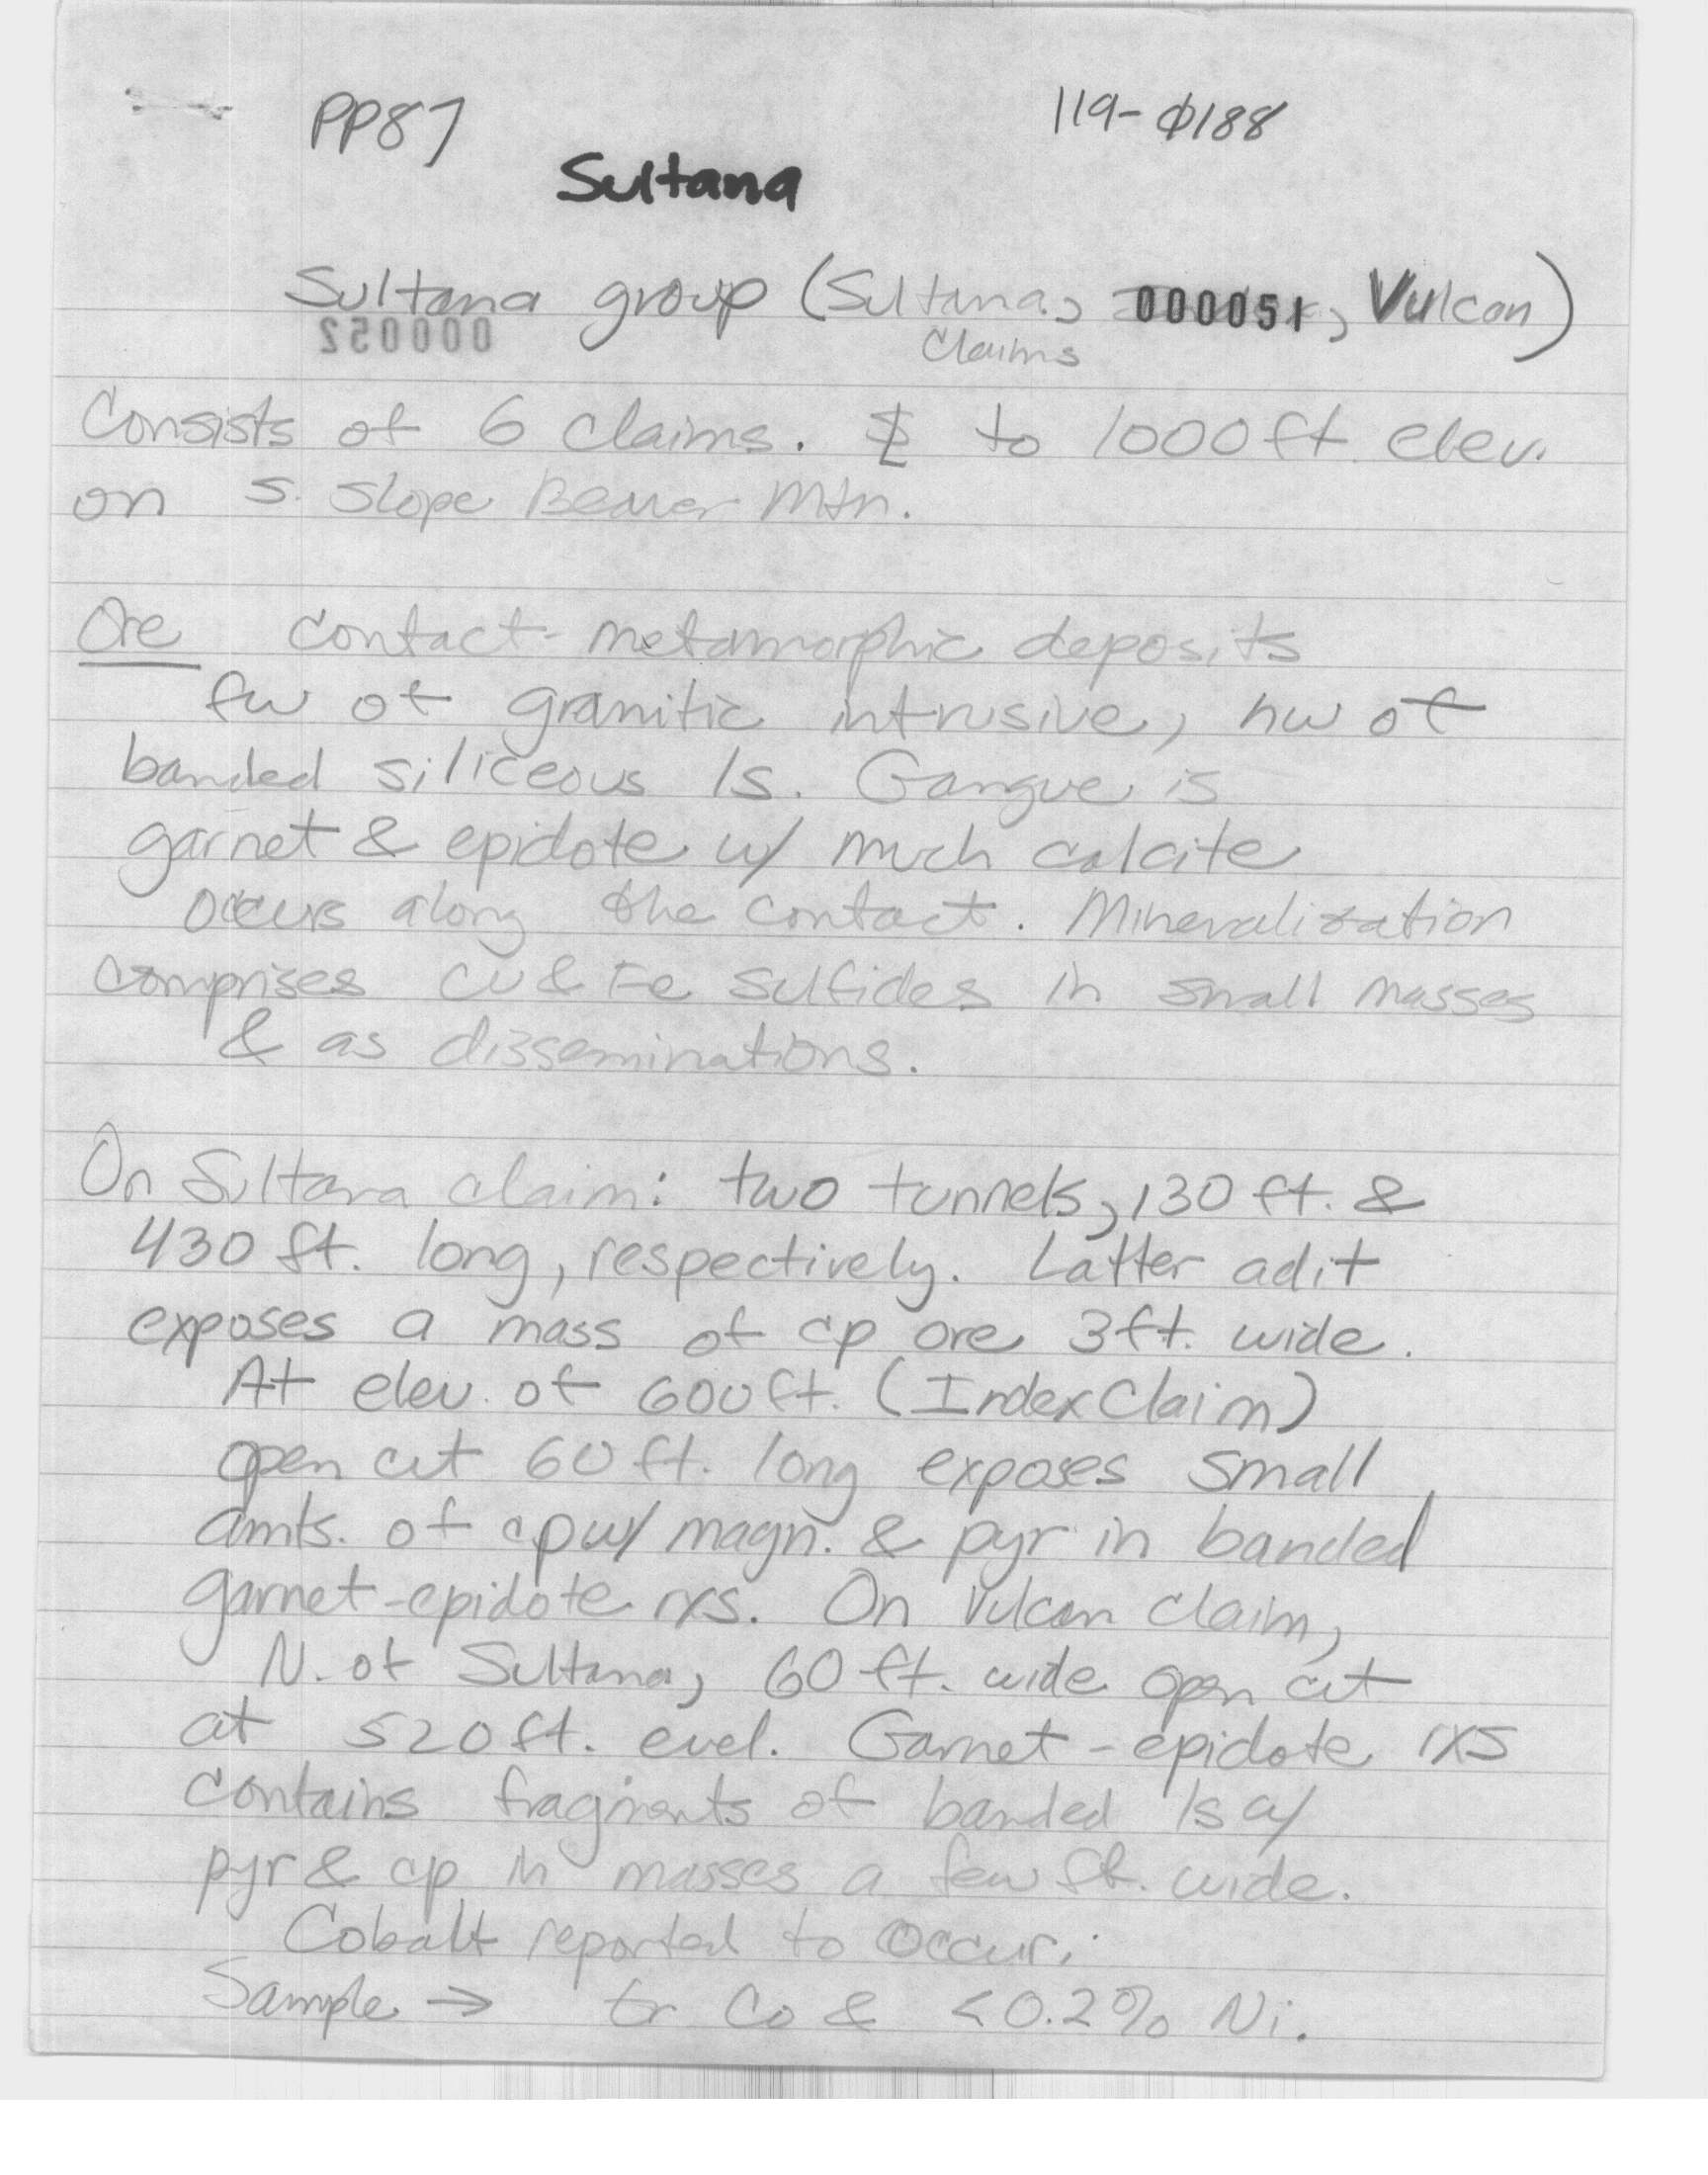 PP87
119-0188
Sultana
Sultana group (Sultana, 000051, Vulcan)
000052
Claims
Consists of 6 claims. to 1000 ft. elev.
on S. Slope Beaver Mtn.
Ore contact-metamorphic deposits
fw of granitic intrusive, hw of
banded siliceous ls. Gangue is
garnet & epidote w/ much calcite
occurs along the contact. Mineralization
comprises Cu & Fe sulfides in small masses
& as disseminations.
On Sultana claim: two tunnels, 130 ft. &
430 ft. long, respectively. Latter adit
exposes a mass of cp ore 3 ft. wide.
At elev. of 600 ft. (Index Claim)
open cut 60 ft. long exposes small
amts. of cp w/ magn. & pyr in banded
garnet-epidote rxs. On Vulcan claim,
N. of Sultana, 60 ft. wide open cut
at 520 ft. evel. Garnet-epidote rxs
contains fragments of banded ls w/
pyr & cp in masses a few ft. wide.
Cobalt reported to occur;
Sample → tr Co & <0.2% Ni.